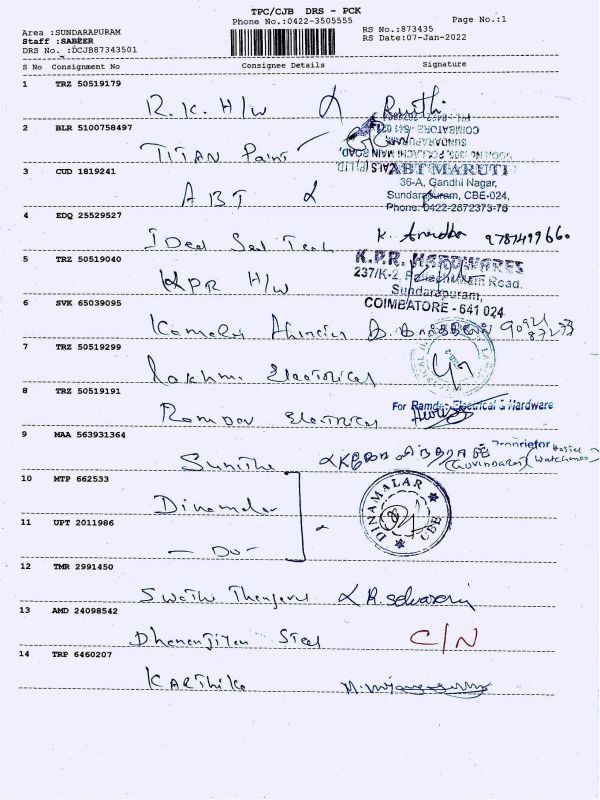 TPC/CJB DRS - PCK
Phone No.:0422-3505555
Page No.:1
Area :SUNDARAPURAM
Staff :SABEER
DRS No. :DCJB87343501
RS No.:873435
RS Date:07-Jan-2022
S No Consignment No Consignee Details Signature
1 TRZ 50519179
R.K. H/W
2 BLR 5100758497
TITAN Paint
COIMBATORE -641 021
SUNDARAPURAM,
POLLACHI MAIN ROAD,
3 CUD 1819241
ABT
ABT MARUTI
36-A, Gandhi Nagar,
Sundarapuram, CBE-024,
Phone: 0422-2672373-76
4 EDQ 25529527
K.
5 TRZ 50519040
KPR H/W
K.P.R. HARDWARES
237/K-2, Pollachi Main Road,
Sundarapuram,
COIMBATORE - 641 024
6 SVK 65039095
7 TRZ 50519299
Lakhmi Electrical
8 TRZ 50519191
Ramdev Electrical
For Ramdev Electrical & Hardware
Proprietor
9 MAA 563931364
Sunitha
(Govindaraj) Hostel
Watchman
10 MTP 662533
Dinamalar
DINAMALAR
CBE
11 UPT 2011986
— Do —
12 TMR 2991450
Swathi
13 AMD 24098542
Dhananjiyan Steel C/N
14 TRP 6460207
Karthika